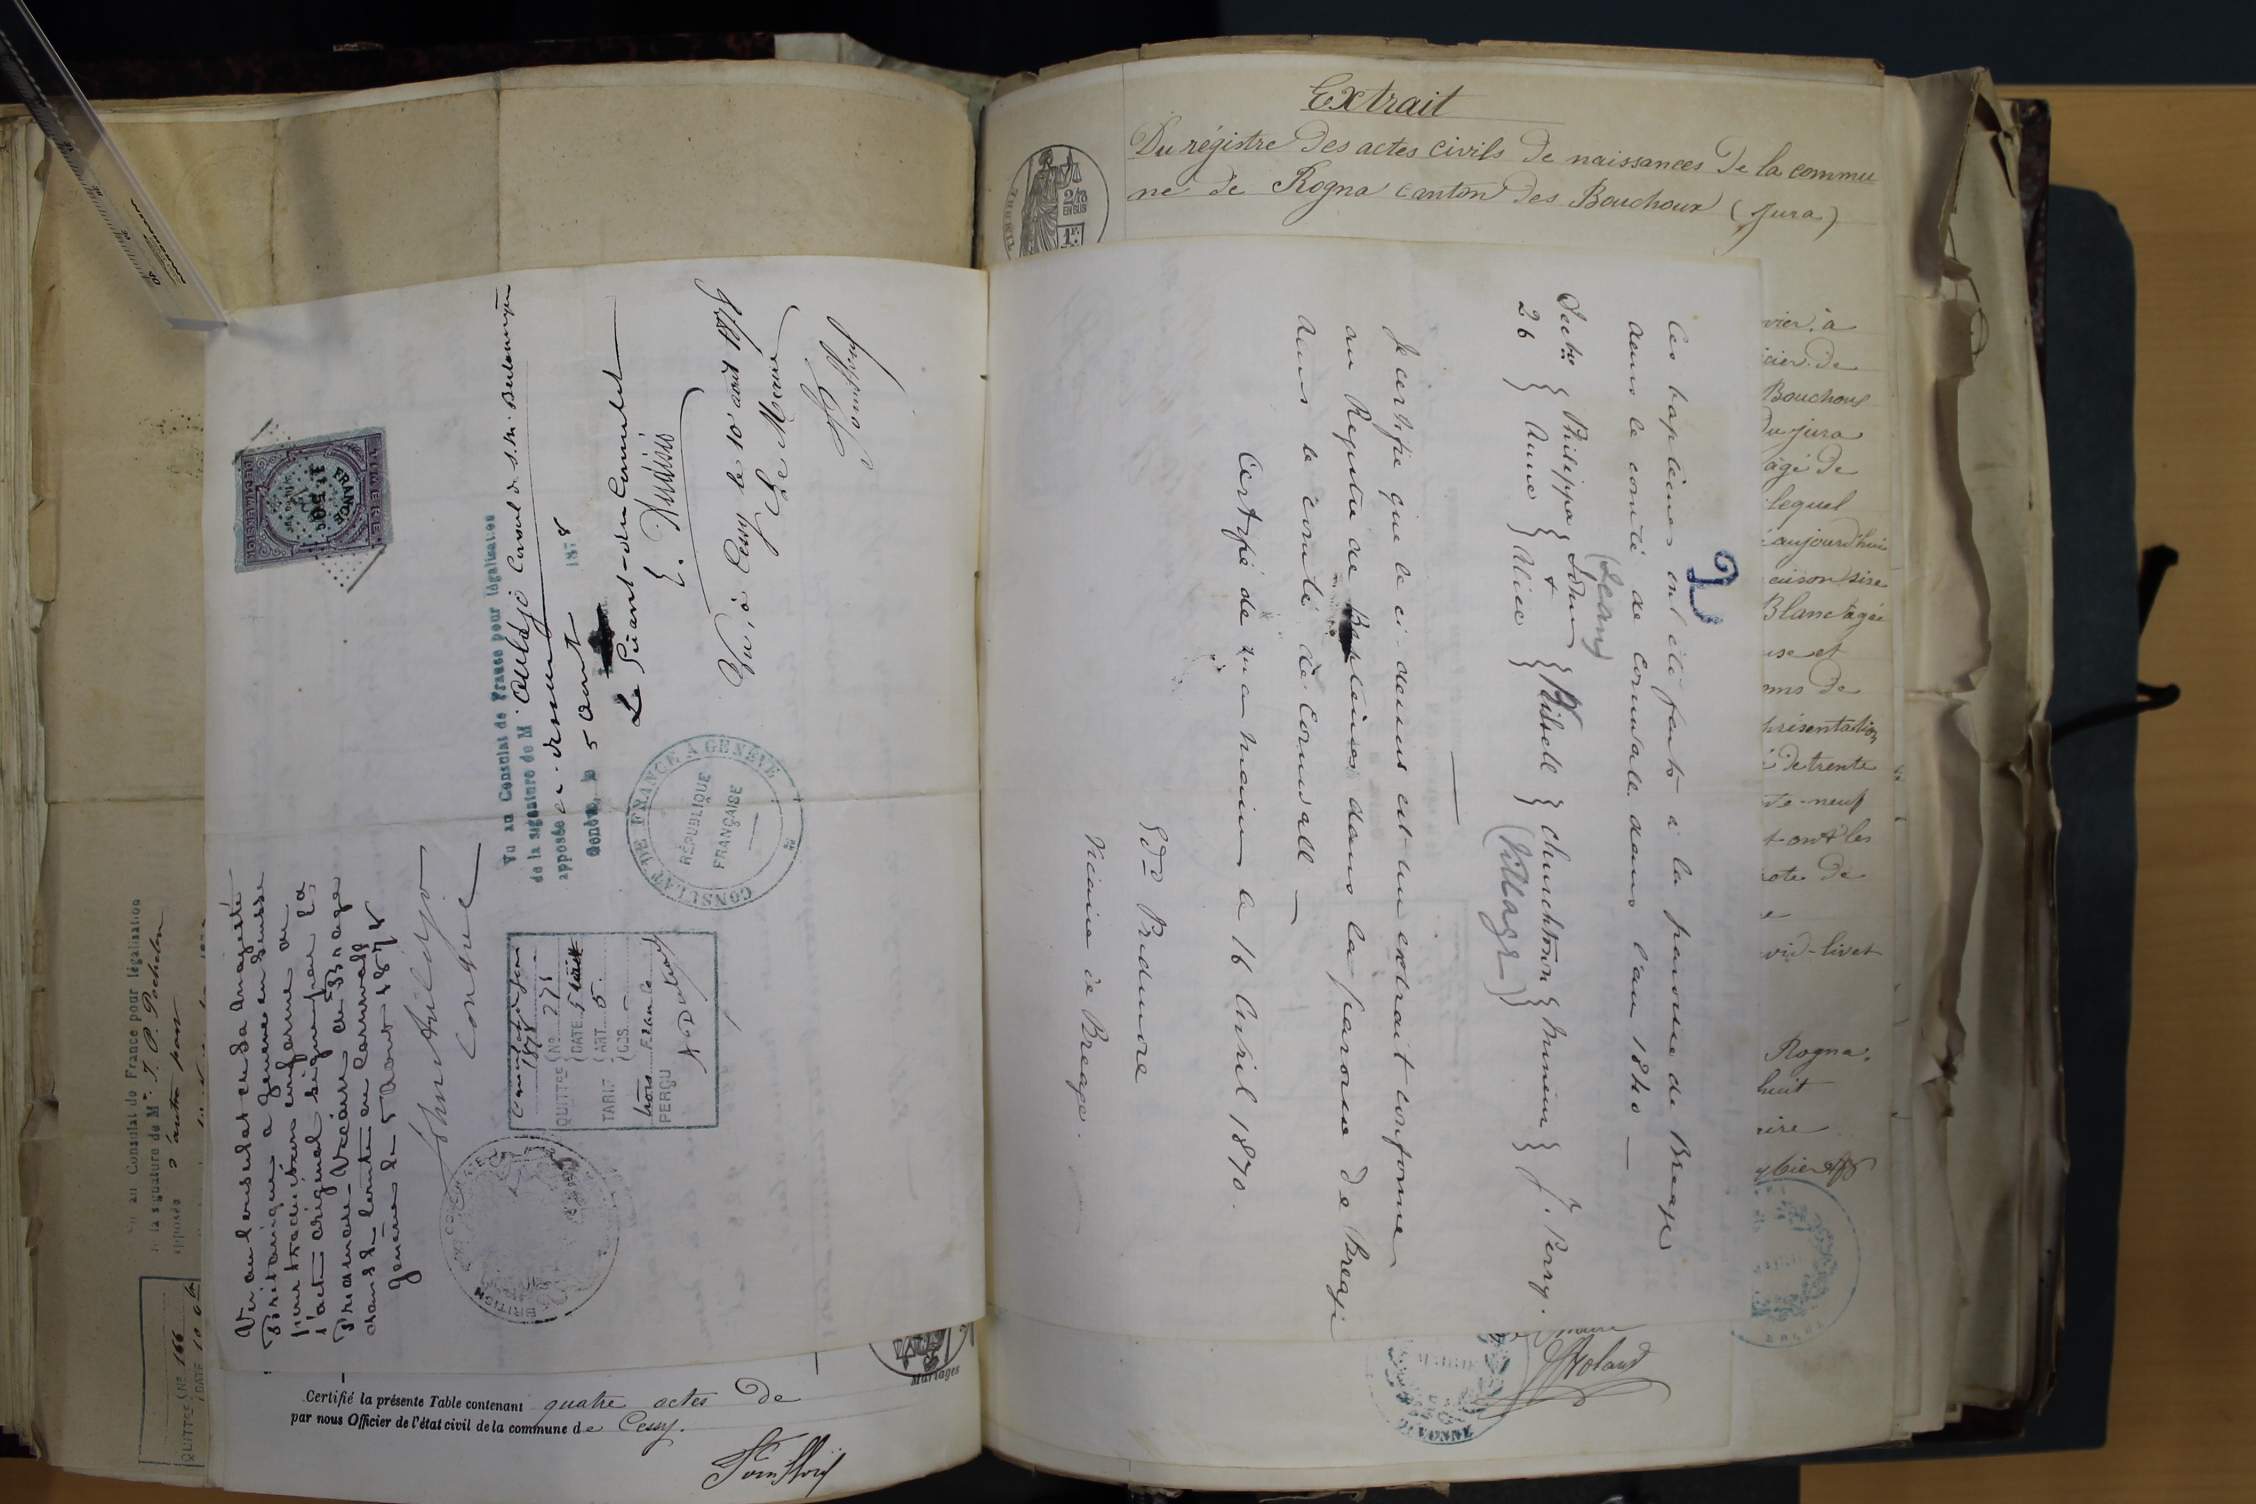 Vu au Consulat de France pour légalisation
de la signature de M. J. P. Pochelon
apposée d'autre part
QUITTCE N° 166
DATE
Vu au Consulat de Sa Majesté
Britannique à Genève en Suisse
pour traduction conforme de
l'acte original signé par
Pridmore Vicaire de Breage
dans le Comté de Cornwall
Genève le 5 Aout 1878
John Auldjo
Consul
BRITISH
FRANCE
1F 50c
Vu au Consulat de France pour légalisation
de la signature de M Auldjo Consul de S. M. Britannique
apposée ci-dessus
Genève, le 5 Aout 1878
Le Gérant du Consulat
CONSULAT DE FRANCE A GENÈVE
RÉPUBLIQUE
FRANÇAISE
1878
QUITTCE N° 271
DATE 5
TARIF ART. 5
COS.
PERÇU
Vu, à Cessy le 10 août 1878
Le Maire
Certifié la présente Table contenant quatre actes de
Mariages
par nous Officier de l'état civil de la commune de Cessy.
Extrait
Du régistre des actes civils de naissances de la commu
ne de Rogna canton des Bouchoux (Jura)
TIMBRE
2/10
EN SUS
1F.
2
Ces baptêmes ont été faits à la paroisse de Breage
dans le comté de Cornwale dans l'an 1840 —
(Leany)
Philippa } John } Kitsell } Churchtown } Mineur } J. Perry.
26 } Anne } + Alice } (Village)
Je certifie que le ci-dessus est un extrait conforme
au Registre de Baptêmes dans la paroisse de Breage
dans le comté de Cornwall —
Certifié de ma main le 16 Avril 1870.
Edwd Pridmore
Vicaire de Breage.
vier à
cier de
Bouchoux
du jura
âgé de
lequel
aujourd'hui
Blanc âgée
use et
oms de
présentation
de trente
te-neuf
t ont les
note de
Rogna.
huit